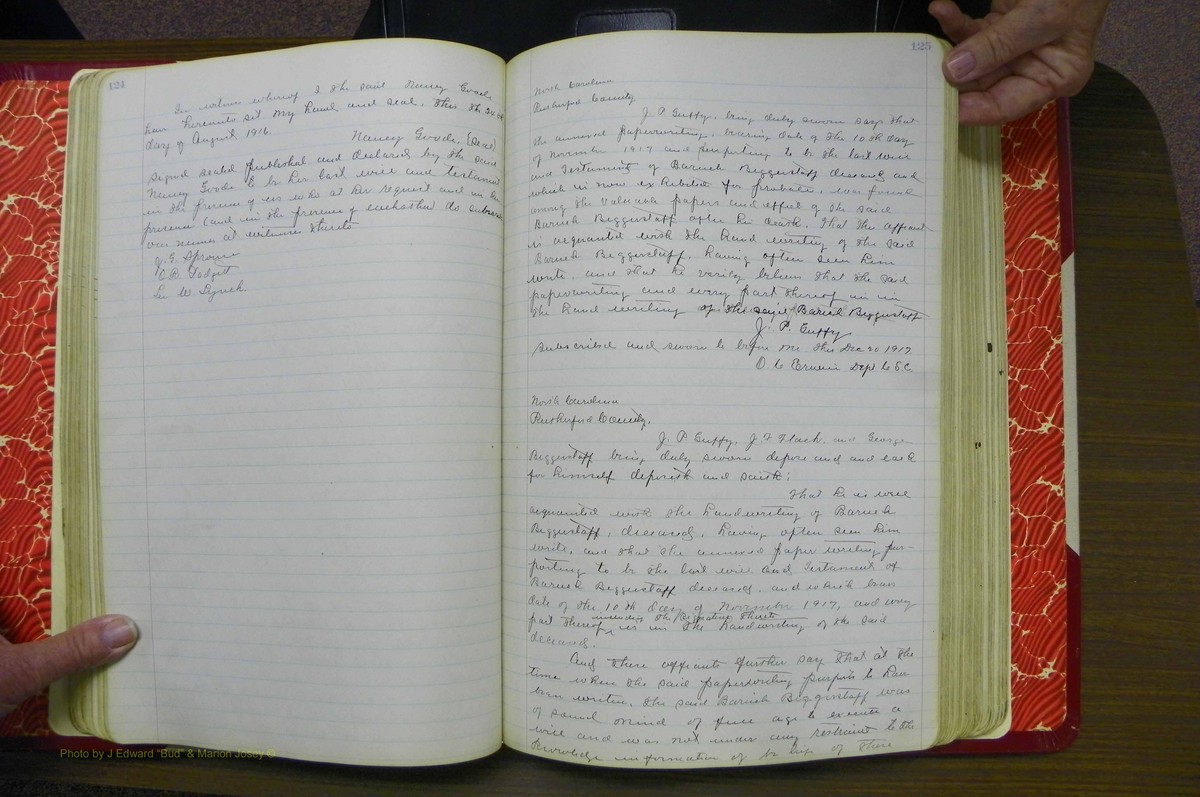 124
In witness whereof I the said Nancy Goode
have hereunto set my hand and seal. This the
day of August 1916.
Nancy Goode, (Seal)
Signed sealed published and declared by the said
Nancy Goode to be her last will and testament
in the presence of us who at her request and in her
presence (and in the presence of eachother do subscribe
our names as witnesses thereto
J. G. Sprouse
O. R. Padgett
Lee W. Lynch
125
North Carolina
Rutherford County
J. P Guffy, being duly sworn says that
the annexed paperwriting, bearing date of the 10th day
of November 1917 and purporting to be the last will
and Testament of Baruch Biggerstaff deceased and
which is now exhibited for probate, was found
among the valuable papers and effect of the said
Baruch Biggerstaff after his death. That the affiant
is acquanted with the hand writing of the said
Baruch Biggerstaff, having often seen him
write, and that he verily believes that the said
paperwriting and every part thereof is in
the hand writing of the said Baruch Biggerstaff
J. P. Guffy
Subscribed and sworn to before me this Dec 20 1917
O. C Erwin Dept C. S.C.
North Carolina
Rutherford County.
J. P Guffy, J. F Flack, and George
Biggerstaff being duly sworn depose and and each
for himself deposeth and saith:
That he is well
acquainted with the handwriting of Baruch
Biggerstaff, deceased, having often seen him
write, and that the annexed paper writing pur-
porting to be the last will and Testament of
Baruch Biggerstaff deceased. and which bears
date of the 10th day of November 1917, and every
including the signature thereto
part thereof, is in the handwriting of the said
deceased.
And these affiants further say that at the
time when the said paperwriting purports to have
been written, the said Baruch Biggerstaff was
of sound mind of full age to execute a
will and was not under any restraint to the
knowledge information of belief of these
Photo by J Edward "Bud" & Marion Josey ©